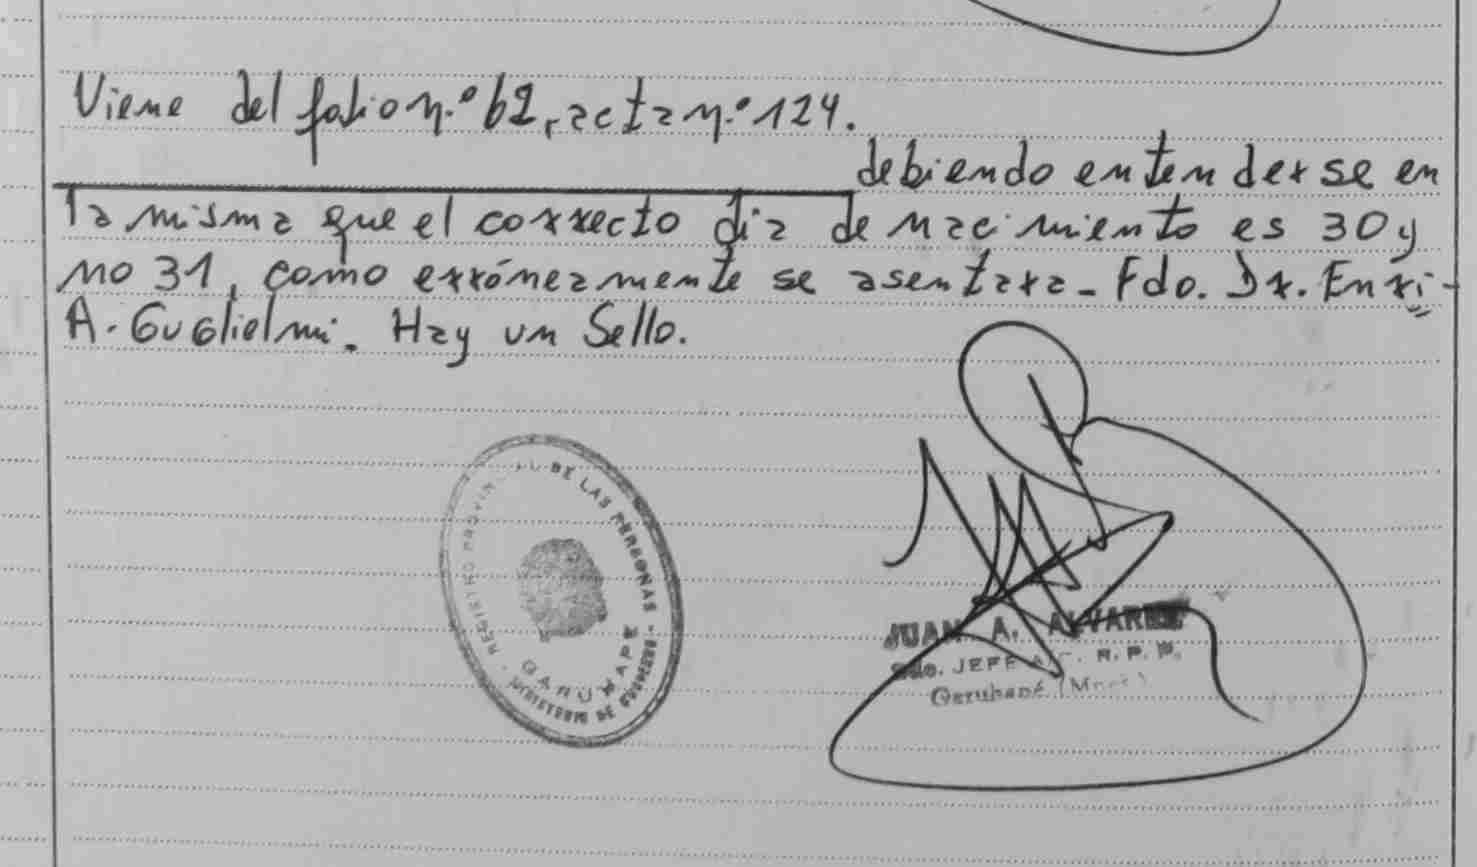 Viene del folio n.º 62, acta n.º 124.
debiendo entenderse en
la misma que el correcto día de nacimiento es 30 y
no 31, como erróneamente se asentara - Fdo. Dr. Enri-
A. Guglielmi. Hay un Sello.
REGISTRO PROVIN DE LAS PERSONAS -
GARUHAPE
MINISTERIO DE GOBIERNO
JUAN A. ALVAREZ
JEFE R. P. P.
Garuhapé (Mnes)